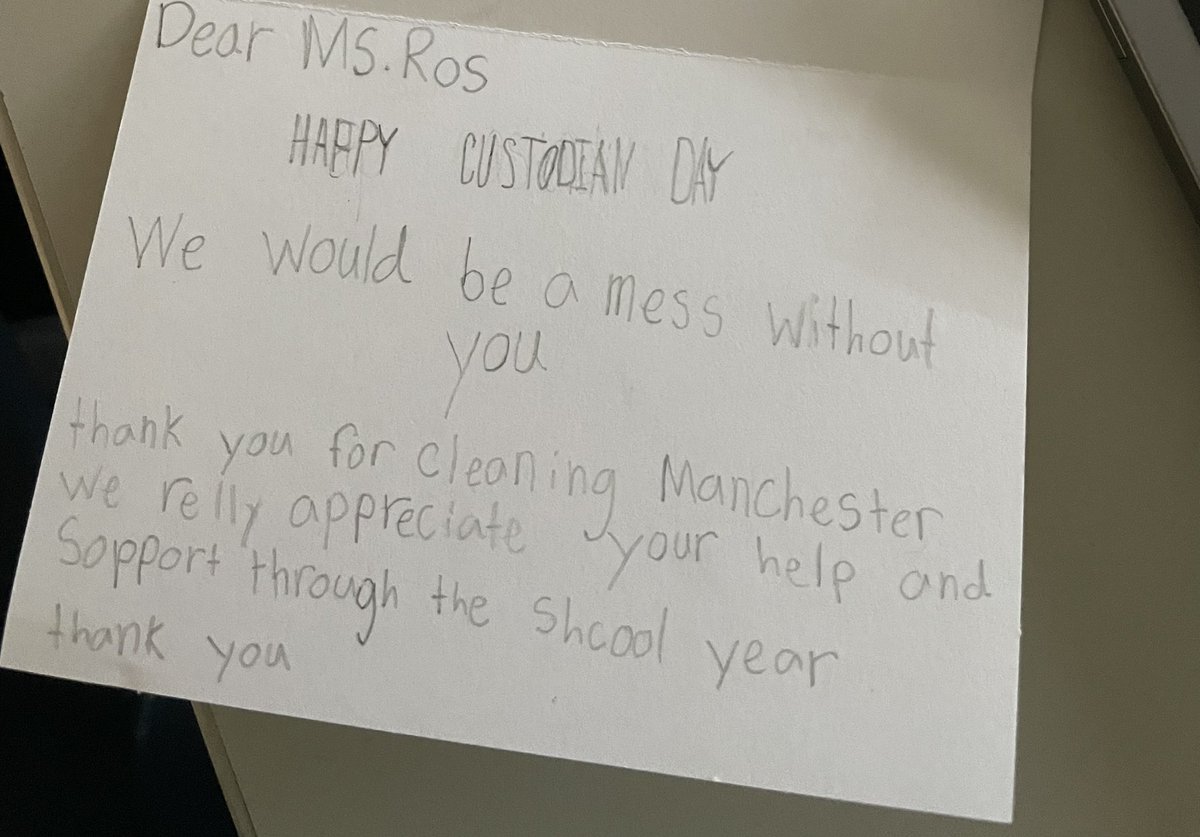 Dear MS. Ros
HAPPY CUSTODIAN DAY
We would be a mess without
you
thank you for cleaning Manchester
We relly appreciate your help and
Sopport through the Shcool year
thank you